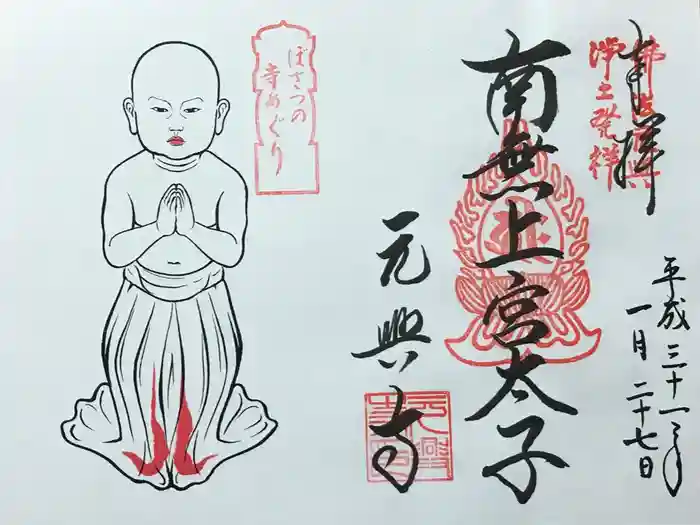 奉拝
佛法元興
浄土発祥
平成三十一年
一月二十七日
南無上宮太子
元興寺
ぼさつの
寺めぐり